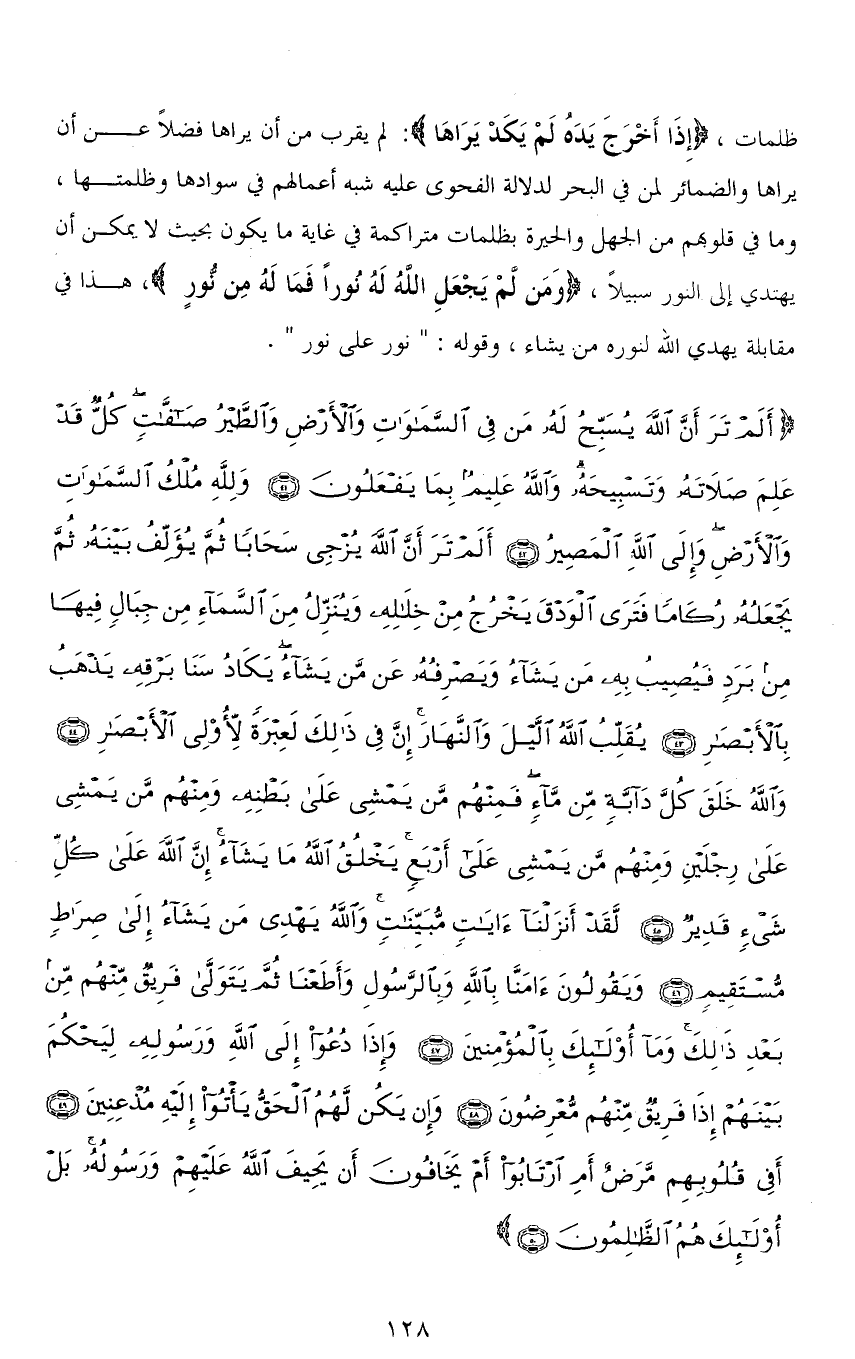 ظلمات ، ﴿إِذَا أَخْرَجَ يَدَهُ لَمْ يَكَدْ يَرَاهَا ﴾: لم يقرب من أن يراها فضلاً عــن أن
يراها والضمائر لمن في البحر لدلالة الفحوى عليه شبه أعمالهم في سوادها وظلمتـها ،
وما في قلوبهم من الجهل والحيرة بظلمات متراكمة في غاية ما يكون بحيث لا يمكـن أن
يهتدي إلى النور سبيلاً ، ﴿وَمَن لَّمْ يَجْعَلِ اللَّهُ لَهُ نُوراً فَمَا لَهُ مِن نُّورٍ ﴾، هـذا في
مقابلة يهدي الله لنوره من يشاء ، وقوله : " نور على نور " .
﴿ أَلَمْ تَرَ أَنَّ ٱللَّهَ يُسَبِّحُ لَهُۥ مَن فِى ٱلسَّمَٰوَٰتِ وَٱلْأَرْضِ وَٱلطَّيْرُ صَٰٓفَّٰتٍۖ كُلٌّ قَدْ
عَلِمَ صَلَاتَهُۥ وَتَسْبِيحَهُۥۗ وَٱللَّهُ عَلِيمٌۢ بِمَا يَفْعَلُونَ ٤١ وَلِلَّهِ مُلْكُ ٱلسَّمَٰوَٰتِ
وَٱلْأَرْضِۖ وَإِلَى ٱللَّهِ ٱلْمَصِيرُ ٤٢ أَلَمْ تَرَ أَنَّ ٱللَّهَ يُزْجِى سَحَابًا ثُمَّ يُؤَلِّفُ بَيْنَهُۥ ثُمَّ
يَجْعَلُهُۥ رُكَامًا فَتَرَى ٱلْوَدْقَ يَخْرُجُ مِنْ خِلَٰلِهِۦ وَيُنَزِّلُ مِنَ ٱلسَّمَآءِ مِن جِبَالٍ فِيهَا
مِنۢ بَرَدٍ فَيُصِيبُ بِهِۦ مَن يَشَآءُ وَيَصْرِفُهُۥ عَن مَّن يَشَآءُۖ يَكَادُ سَنَا بَرْقِهِۦ يَذْهَبُ
بِٱلْأَبْصَٰرِ ٤٣ يُقَلِّبُ ٱللَّهُ ٱلَّيْلَ وَٱلنَّهَارَۚ إِنَّ فِى ذَٰلِكَ لَعِبْرَةً لِّأُو۟لِى ٱلْأَبْصَٰرِ ٤٤
وَٱللَّهُ خَلَقَ كُلَّ دَآبَّةٍ مِّن مَّآءٍۖ فَمِنْهُم مَّن يَمْشِى عَلَىٰ بَطْنِهِۦ وَمِنْهُم مَّن يَمْشِى
عَلَىٰ رِجْلَيْنِ وَمِنْهُم مَّن يَمْشِى عَلَىٰٓ أَرْبَعٍۚ يَخْلُقُ ٱللَّهُ مَا يَشَآءُۚ إِنَّ ٱللَّهَ عَلَىٰ كُلِّ
شَىْءٍ قَدِيرٌ ٤٥ لَّقَدْ أَنزَلْنَآ ءَايَٰتٍ مُّبَيِّنَٰتٍۚ وَٱللَّهُ يَهْدِى مَن يَشَآءُ إِلَىٰ صِرَٰطٍ
مُّسْتَقِيمٍ ٤٦ وَيَقُولُونَ ءَامَنَّا بِٱللَّهِ وَبِٱلرَّسُولِ وَأَطَعْنَا ثُمَّ يَتَوَلَّىٰ فَرِيقٌ مِّنْهُم مِّنۢ
بَعْدِ ذَٰلِكَۚ وَمَآ أُو۟لَٰٓئِكَ بِٱلْمُؤْمِنِينَ ٤٧ وَإِذَا دُعُوٓا۟ إِلَى ٱللَّهِ وَرَسُولِهِۦ لِيَحْكُمَ
بَيْنَهُمْ إِذَا فَرِيقٌ مِّنْهُم مُّعْرِضُونَ ٤٨ وَإِن يَكُن لَّهُمُ ٱلْحَقُّ يَأْتُوٓا۟ إِلَيْهِ مُذْعِنِينَ ٤٩
أَفِى قُلُوبِهِم مَّرَضٌ أَمِ ٱرْتَابُوٓا۟ أَمْ يَخَافُونَ أَن يَحِيفَ ٱللَّهُ عَلَيْهِمْ وَرَسُولُهُۥۚ بَلْ
أُو۟لَٰٓئِكَ هُمُ ٱلظَّٰلِمُونَ ٥٠ ﴾
١٢٨